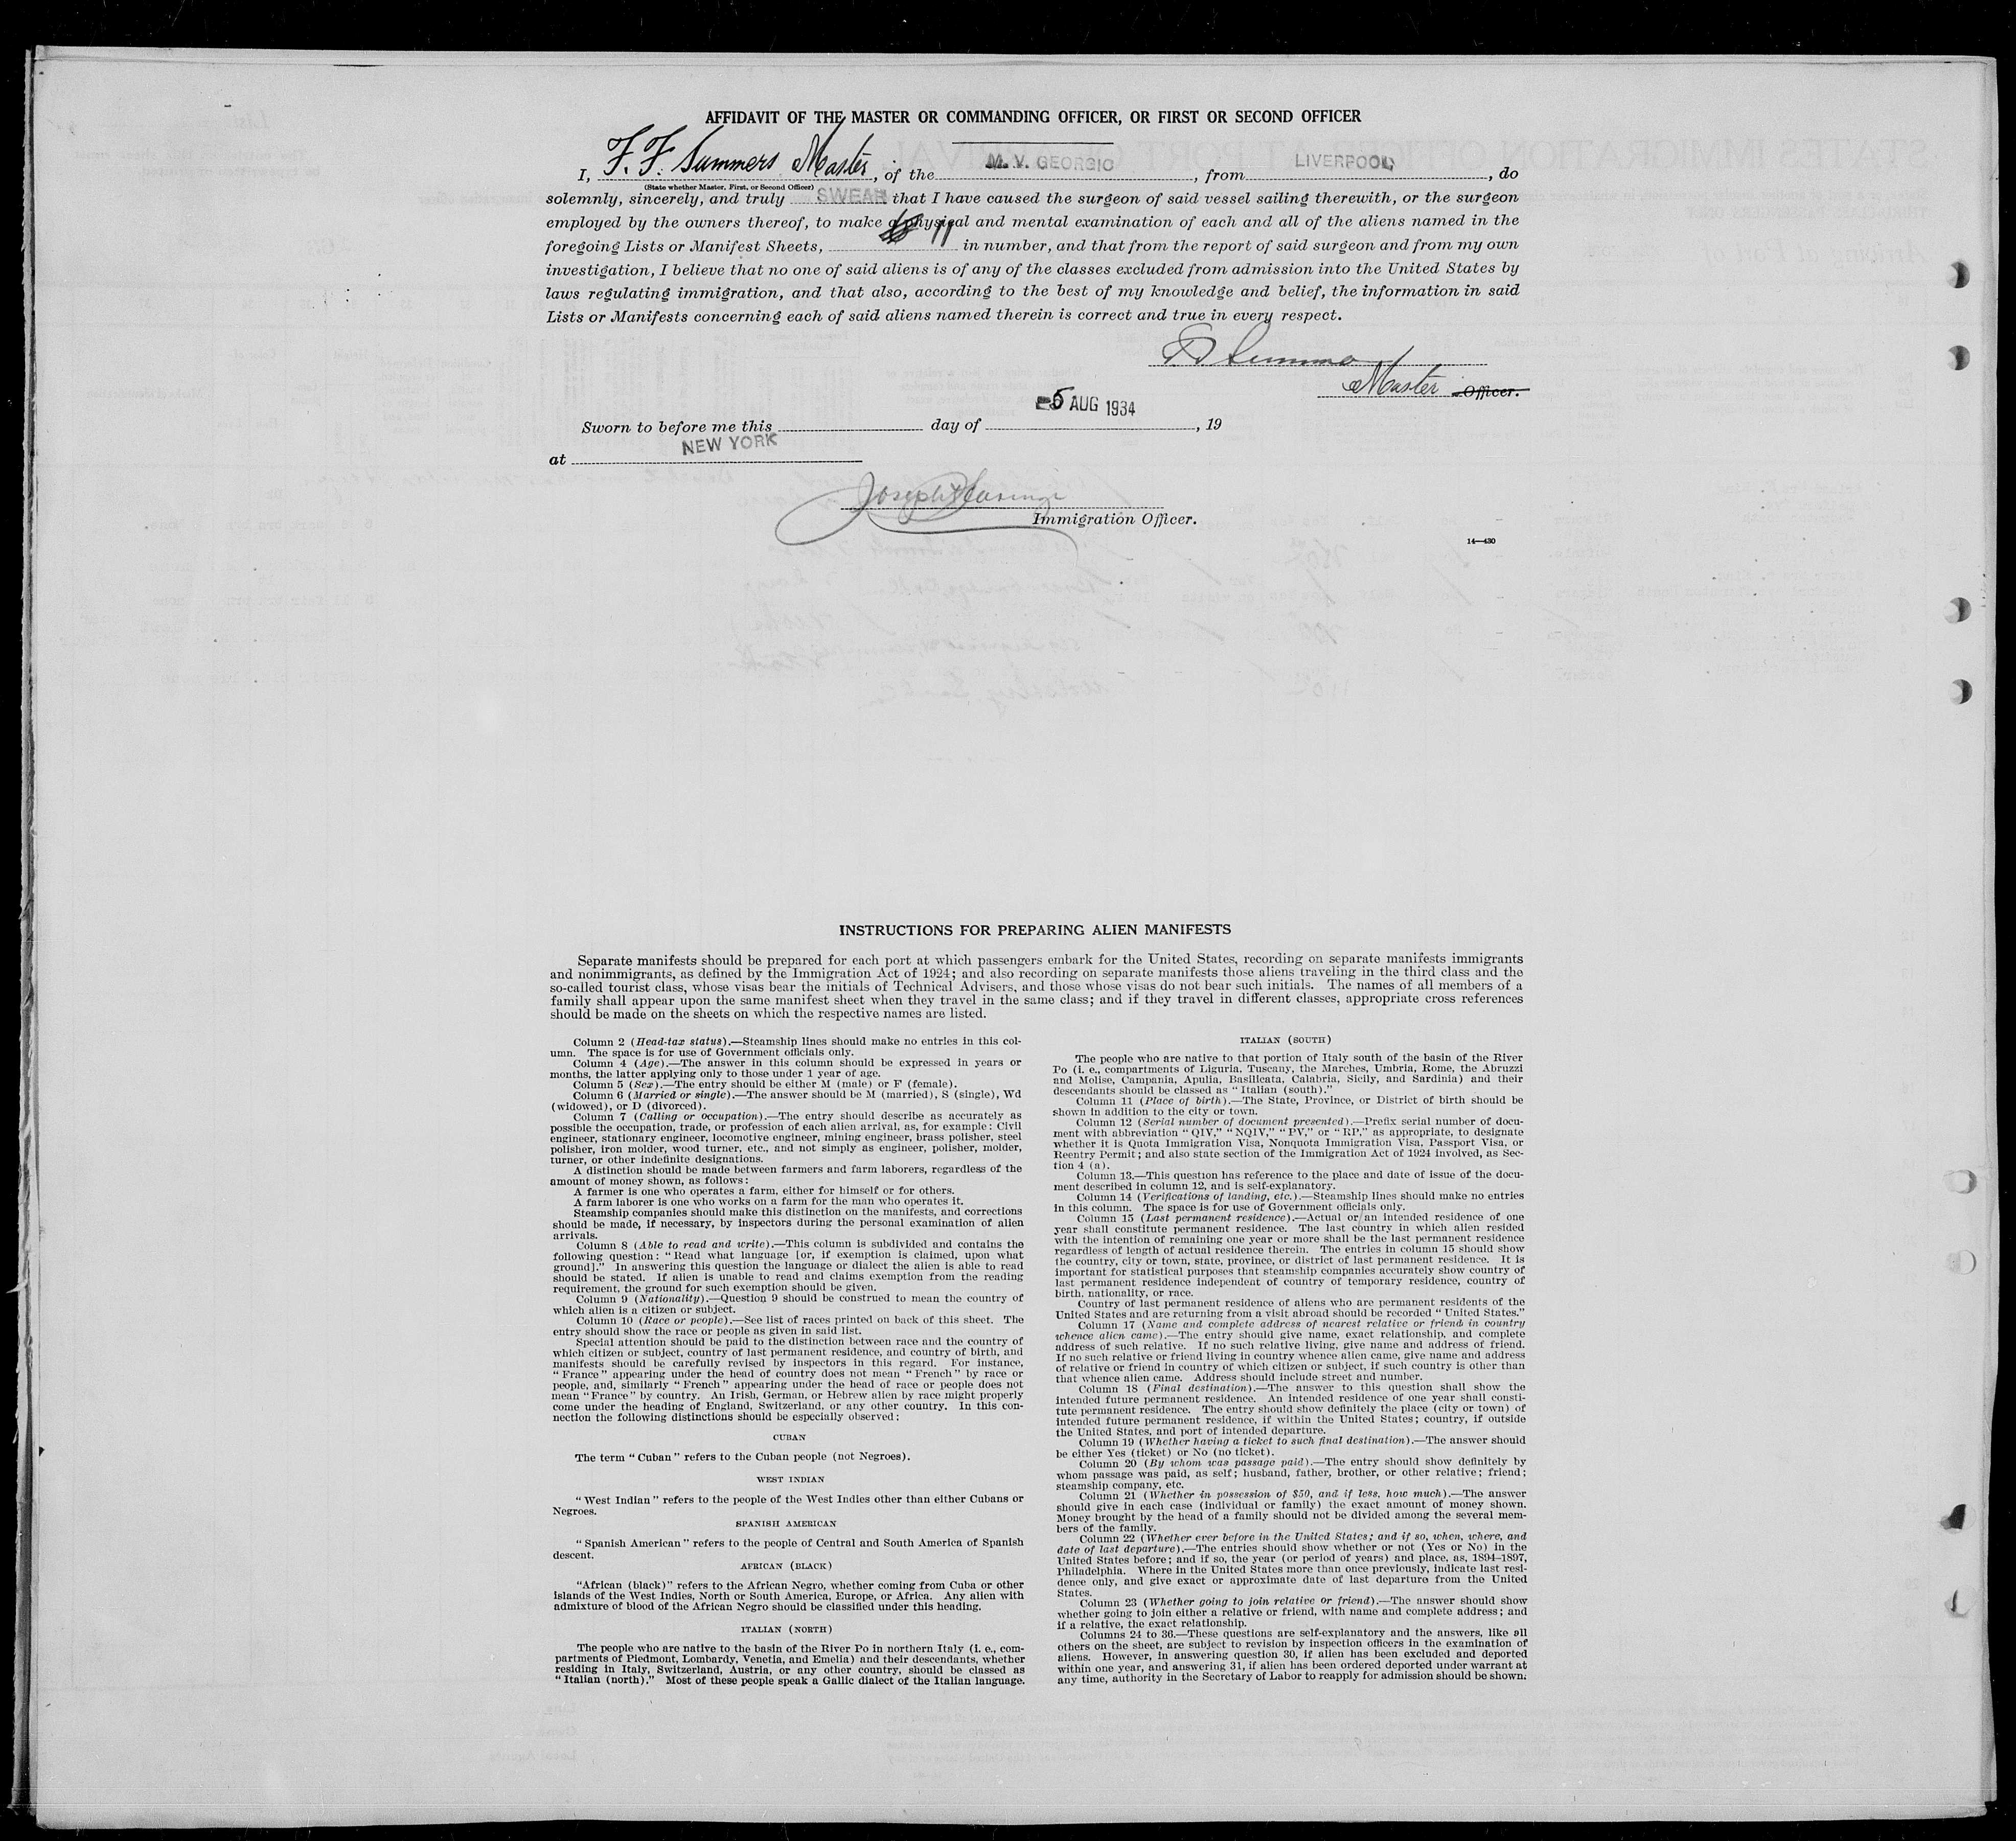 AFFIDAVIT OF THE MASTER OR COMMANDING OFFICER, OR FIRST OR SECOND OFFICER
I, F. F. Summers Master, of the M. V. GEORGIC, from LIVERPOOL, do
(State whether Master, First, or Second Officer)
solemnly, sincerely, and truly SWEAR that I have caused the surgeon of said vessel sailing therewith, or the surgeon
employed by the owners thereof, to make a physical and mental examination of each and all of the aliens named in the
foregoing Lists or Manifest Sheets, 11 in number, and that from the report of said surgeon and from my own
investigation, I believe that no one of said aliens is of any of the classes excluded from admission into the United States by
laws regulating immigration, and that also, according to the best of my knowledge and belief, the information in said
Lists or Manifests concerning each of said aliens named therein is correct and true in every respect.
Master Officer.
-5 AUG 1934
Sworn to before me this day of , 19
at NEW YORK
Joseph
Immigration Officer.
14—430
INSTRUCTIONS FOR PREPARING ALIEN MANIFESTS
Separate manifests should be prepared for each port at which passengers embark for the United States, recording on separate manifests immigrants
and nonimmigrants, as defined by the Immigration Act of 1924; and also recording on separate manifests those aliens traveling in the third class and the
so-called tourist class, whose visas bear the initials of Technical Advisers, and those whose visas do not bear such initials. The names of all members of a
family shall appear upon the same manifest sheet when they travel in the same class; and if they travel in different classes, appropriate cross references
should be made on the sheets on which the respective names are listed.
Column 2 (Head-tax status).—Steamship lines should make no entries in this col-
umn. The space is for use of Government officials only.
Column 4 (Age).—The answer in this column should be expressed in years or
months, the latter applying only to those under 1 year of age.
Column 5 (Sex).—The entry should be either M (male) or F (female).
Column 6 (Married or single).—The answer should be M (married), S (single), Wd
(widowed), or D (divorced).
Column 7 (Calling or occupation).—The entry should describe as accurately as
possible the occupation, trade, or profession of each alien arrival, as, for example: Civil
engineer, stationary engineer, locomotive engineer, mining engineer, brass polisher, steel
polisher, iron molder, wood turner, etc., and not simply as engineer, polisher, molder,
turner, or other indefinite designations.
A distinction should be made between farmers and farm laborers, regardless of the
amount of money shown, as follows:
A farmer is one who operates a farm, either for himself or for others.
A farm laborer is one who works on a farm for the man who operates it.
Steamship companies should make this distinction on the manifests, and corrections
should be made, if necessary, by inspectors during the personal examination of alien
arrivals.
Column 8 (Able to read and write).—This column is subdivided and contains the
following question: "Read what language [or, if exemption is claimed, upon what
ground]." In answering this question the language or dialect the alien is able to read
should be stated. If alien is unable to read and claims exemption from the reading
requirement, the ground for such exemption should be given.
Column 9 (Nationality).—Question 9 should be construed to mean the country of
which alien is a citizen or subject.
Column 10 (Race or people).—See list of races printed on back of this sheet. The
entry should show the race or people as given in said list.
Special attention should be paid to the distinction between race and the country of
which citizen or subject, country of last permanent residence, and country of birth, and
manifests should be carefully revised by inspectors in this regard. For instance,
"France" appearing under the head of country does not mean "French" by race or
people, and, similarly "French" appearing under the head of race or people does not
mean "France" by country. An Irish, German, or Hebrew alien by race might properly
come under the heading of England, Switzerland, or any other country. In this con-
nection the following distinctions should be especially observed:
CUBAN
The term "Cuban" refers to the Cuban people (not Negroes).
WEST INDIAN
"West Indian" refers to the people of the West Indies other than either Cubans or
Negroes.
SPANISH AMERICAN
"Spanish American" refers to the people of Central and South America of Spanish
descent.
AFRICAN (BLACK)
"African (black)" refers to the African Negro, whether coming from Cuba or other
islands of the West Indies, North or South America, Europe, or Africa. Any alien with
admixture of blood of the African Negro should be classified under this heading.
ITALIAN (NORTH)
The people who are native to the basin of the River Po in northern Italy (i. e., com-
partments of Piedmont, Lombardy, Venetia, and Emelia) and their descendants, whether
residing in Italy, Switzerland, Austria, or any other country, should be classed as
"Italian (north)." Most of these people speak a Gallic dialect of the Italian language.
ITALIAN (SOUTH)
The people who are native to that portion of Italy south of the basin of the River
Po (i. e., compartments of Liguria, Tuscany, the Marches, Umbria, Rome, the Abruzzi
and Molise, Campania, Apulia, Basilicata, Calabria, Sicily, and Sardinia) and their
descendants should be classed as "Italian (south)."
Column 11 (Place of birth).—The State, Province, or District of birth should be
shown in addition to the city or town.
Column 12 (Serial number of document presented).—Prefix serial number of docu-
ment with abbreviation "QIV," "NQIV," "PV," or "RP," as appropriate, to designate
whether it is Quota Immigration Visa, Nonquota Immigration Visa, Passport Visa, or
Reentry Permit; and also state section of the Immigration Act of 1924 involved, as Sec-
tion 4 (a).
Column 13.—This question has reference to the place and date of issue of the docu-
ment described in column 12, and is self-explanatory.
Column 14 (Verifications of landing, etc.).—Steamship lines should make no entries
in this column. The space is for use of Government officials only.
Column 15 (Last permanent residence).—Actual or an intended residence of one
year shall constitute permanent residence. The last country in which alien resided
with the intention of remaining one year or more shall be the last permanent residence
regardless of length of actual residence therein. The entries in column 15 should show
the country, city or town, state, province, or district of last permanent residence. It is
important for statistical purposes that steamship companies accurately show country of
last permanent residence independent of country of temporary residence, country of
birth, nationality, or race.
Country of last permanent residence of aliens who are permanent residents of the
United States and are returning from a visit abroad should be recorded "United States."
Column 17 (Name and complete address of nearest relative or friend in country
whence alien came).—The entry should give name, exact relationship, and complete
address of such relative. If no such relative living, give name and address of friend.
If no such relative or friend living in country whence alien came, give name and address
of relative or friend in country of which citizen or subject, if such country is other than
that whence alien came. Address should include street and number.
Column 18 (Final destination).—The answer to this question shall show the
intended future permanent residence. An intended residence of one year shall consti-
tute permanent residence. The entry should show definitely the place (city or town) of
intended future permanent residence, if within the United States; country, if outside
the United States, and port of intended departure.
Column 19 (Whether having a ticket to such final destination).—The answer should
be either Yes (ticket) or No (no ticket).
Column 20 (By whom was passage paid).—The entry should show definitely by
whom passage was paid, as self; husband, father, brother, or other relative; friend;
steamship company, etc.
Column 21 (Whether in possession of $50, and if less, how much).—The answer
should give in each case (individual or family) the exact amount of money shown.
Money brought by the head of a family should not be divided among the several mem-
bers of the family.
Column 22 (Whether ever before in the United States; and if so, when, where, and
date of last departure).—The entries should show whether or not (Yes or No) in the
United States before; and if so, the year (or period of years) and place, as, 1894–1897,
Philadelphia. Where in the United States more than once previously, indicate last resi-
dence only, and give exact or approximate date of last departure from the United
States.
Column 23 (Whether going to join relative or friend).—The answer should show
whether going to join either a relative or friend, with name and complete address; and
if a relative, the exact relationship.
Columns 24 to 36.—These questions are self-explanatory and the answers, like all
others on the sheet, are subject to revision by inspection officers in the examination of
aliens. However, in answering question 30, if alien has been excluded and deported
within one year, and answering 31, if alien has been ordered deported under warrant at
any time, authority in the Secretary of Labor to reapply for admission should be shown.